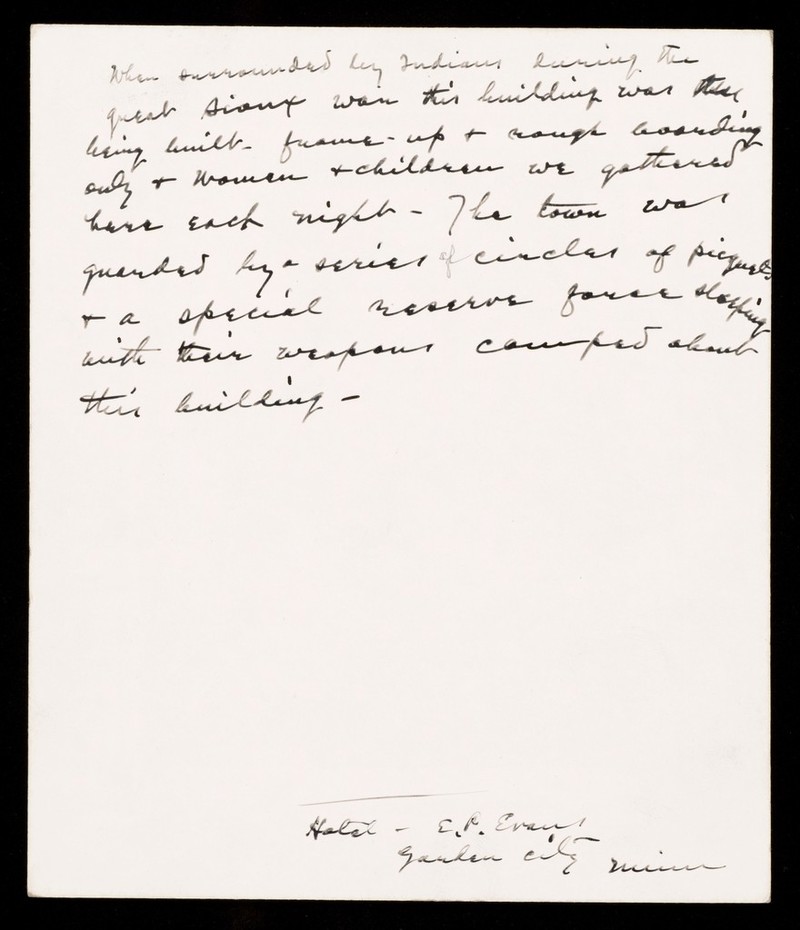 When surrounded by Indians during the
great Sioux war this building was then
being built - frame-up + rough boarding
only + women + children we gathered
here each night - The town was
guarded by a series of circles of picquets
+ a special reserve force sleeping
with their weapons camped about
this building -
Hotel - E.P. Evans
Garden city Minn